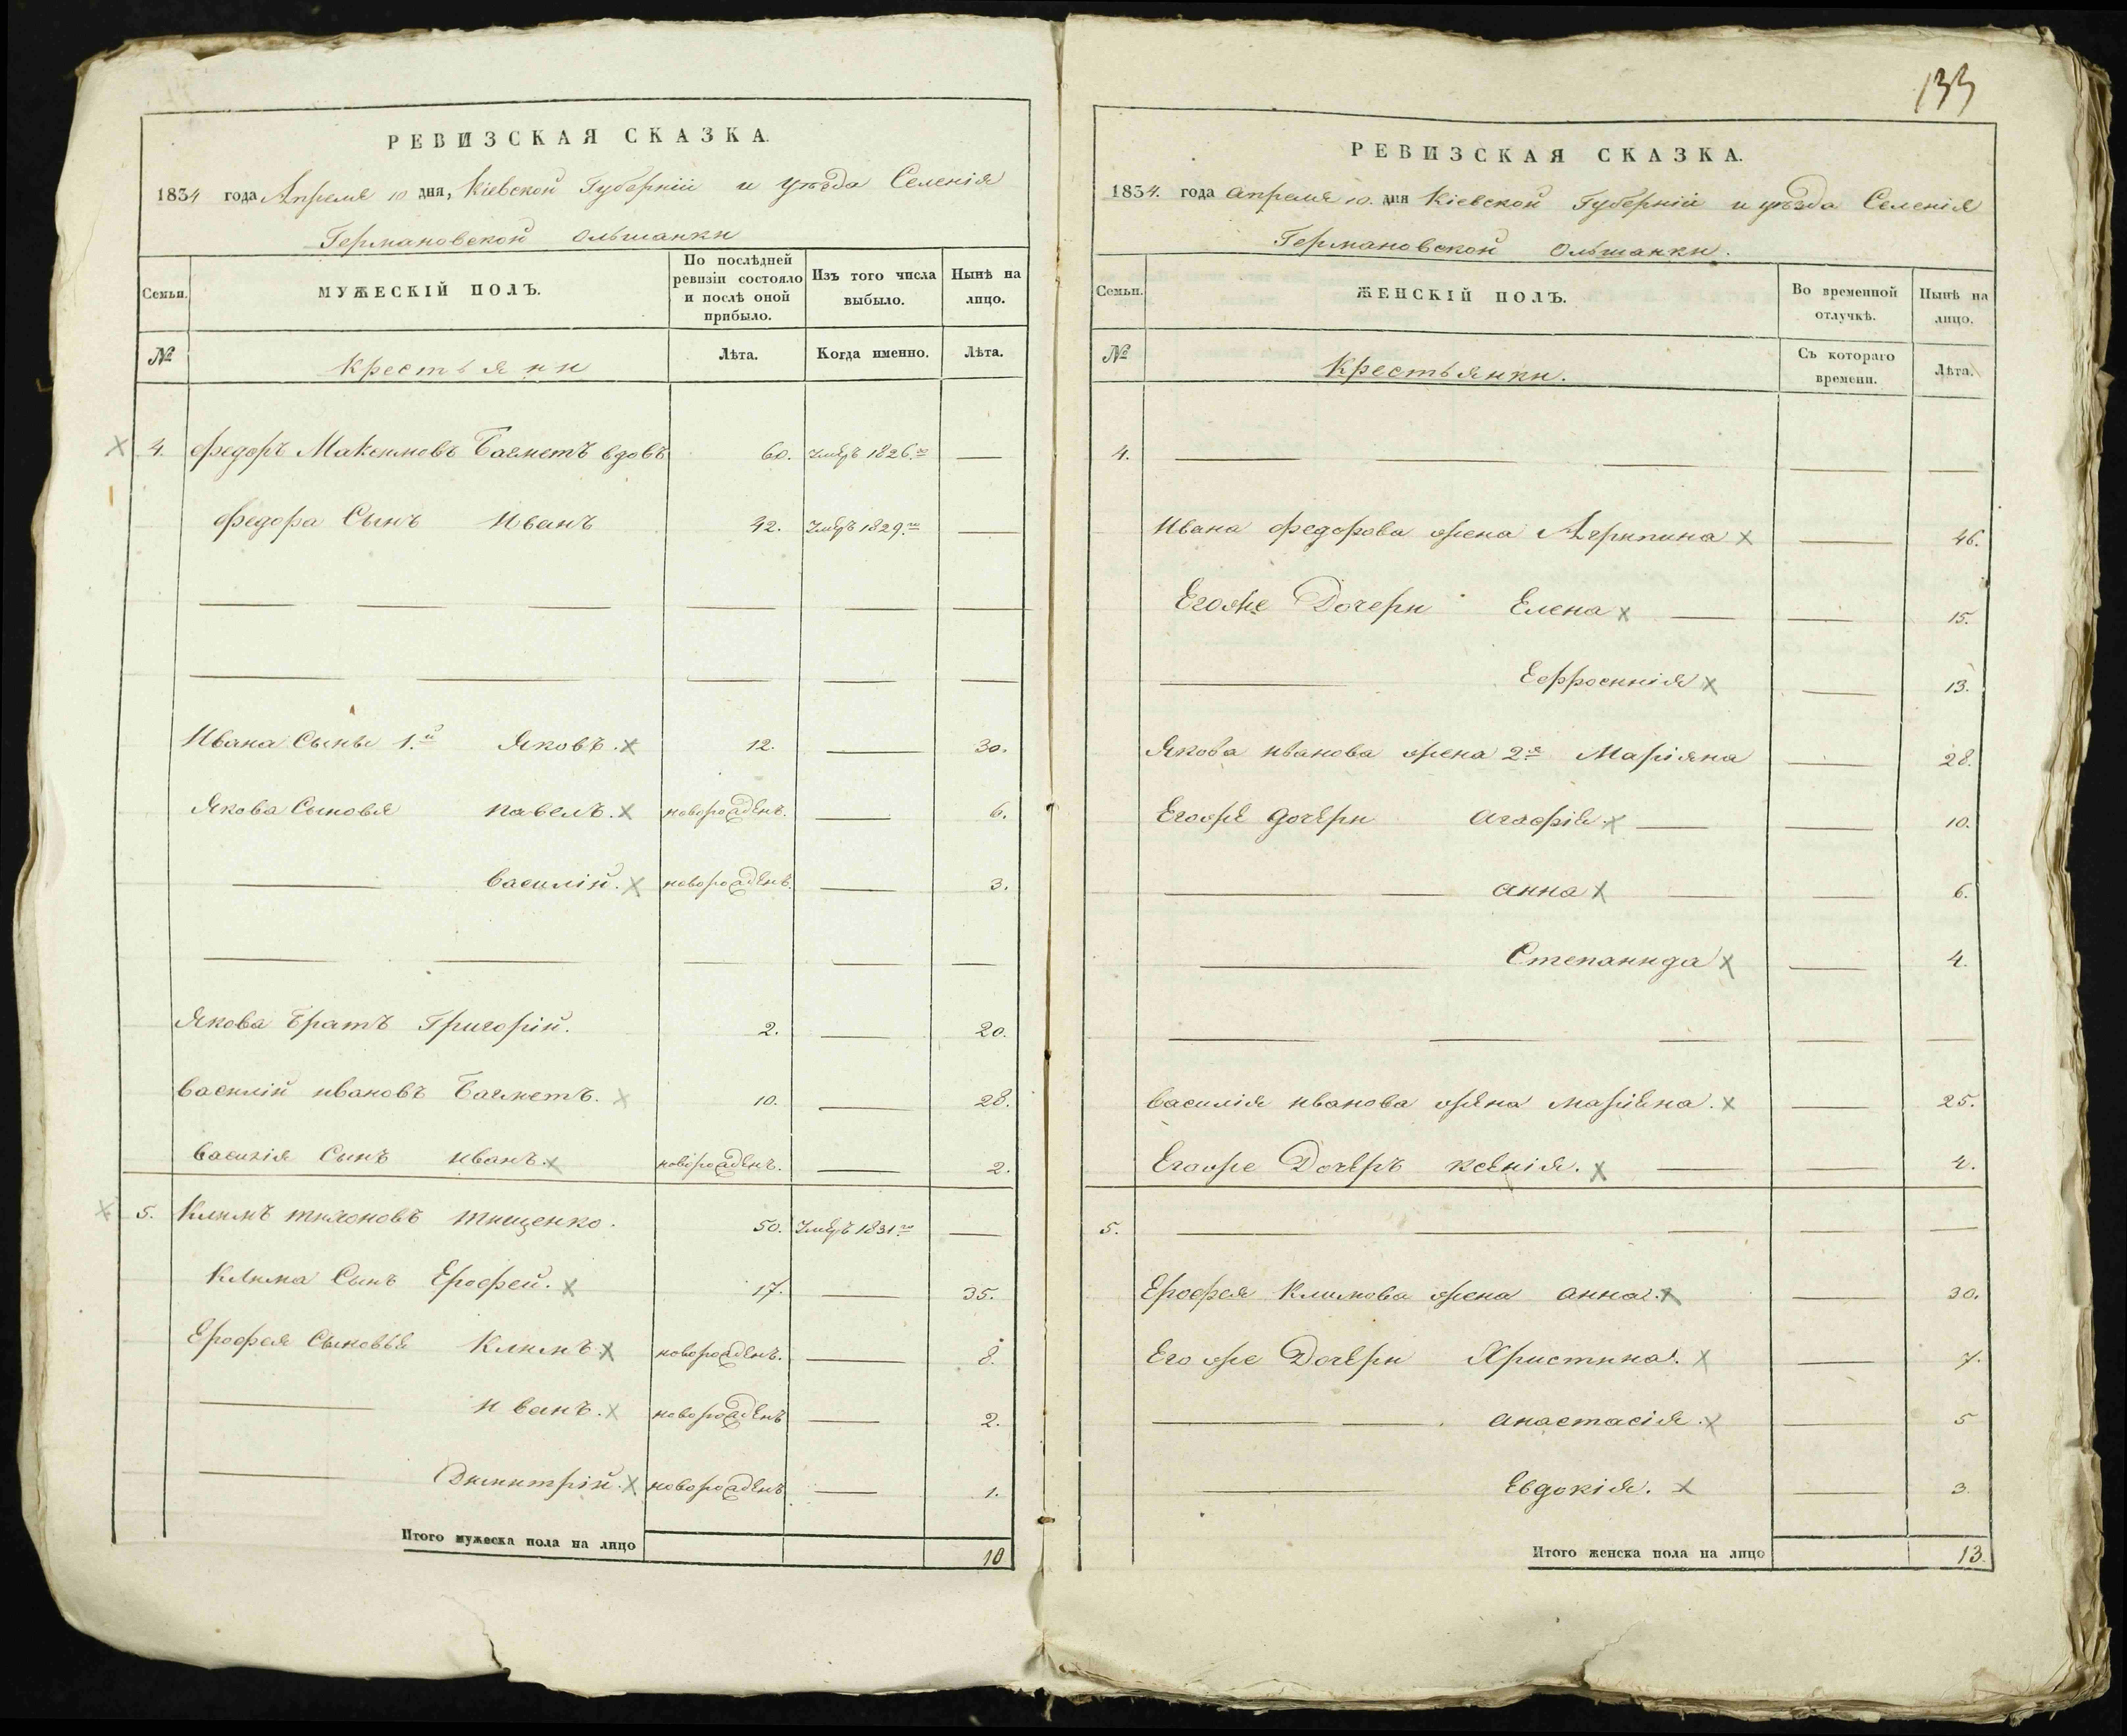 133
РЕВИЗСКАЯ СКАЗКА.
1834 года Апреля 10 дня, Кіевской Губерніи и уѣзда Селенія
Германовской Ольшанки
Семьи.
МУЖЕСКІЙ ПОЛЪ.
По послѣдней ревизіи состояло и послѣ оной прибыло.
Изъ того числа выбыло.
Нынѣ на лицо.
№
Крестьяни
Лѣта.
Когда именно.
Лѣта.
4. Федоръ Максимовъ вдовъ 60. 1826.го
Федора Сынъ Иванъ 42. 1829.го
Ивана Сыны 1.й Яковъ. 12. 30.
Якова Сыновья Павелъ. новорожденъ. 6.
Василій. новорожденъ. 3.
Якова Братъ Григорій. 2. 20.
Василій Ивановъ 10. 28.
Василія Сынъ Иванъ. новорожденъ. 2.
5. Климъ Тихоновъ Тищенко. 50. 1831.го
Клима Сынъ Ерофей. 17. 35.
Ерофея Сыновья Климъ новорожденъ. 8.
Иванъ. новорожденъ 2.
Димитрій. новорожденъ 1.
Итого мужеска пола на лицо 10
РЕВИЗСКАЯ СКАЗКА.
1834. года Апреля 10. дня Кіевской Губерніи и уѣзда Селенія
Германовской Ольшанки.
Семьи.
ЖЕНСКІЙ ПОЛЪ.
Во временной отлучкѣ.
Нынѣ на лицо.
№
Крестьянки.
Съ котораго времени.
Лѣта.
4.
Ивана Федорова жена 46.
Егоже Дочери Елена 15.
Ефросинія 13.
Якова Иванова жена 2я Маріяна 28.
Егоже дочери Агафія 10.
Анна 6.
Степанида 4.
Василія Иванова жена Маріяна. 25.
Егоже Дочеръ Ксенія. 4.
5.
Ерофея Климова жена Анна. 30.
Егоже Дочери Христина. 7.
Анастасія. 5
Евдокія. 3
Итого женска пола на лицо 13.